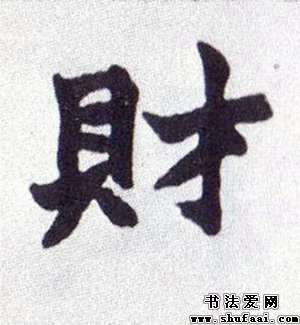 財
书法爱网
www.shufaai.com